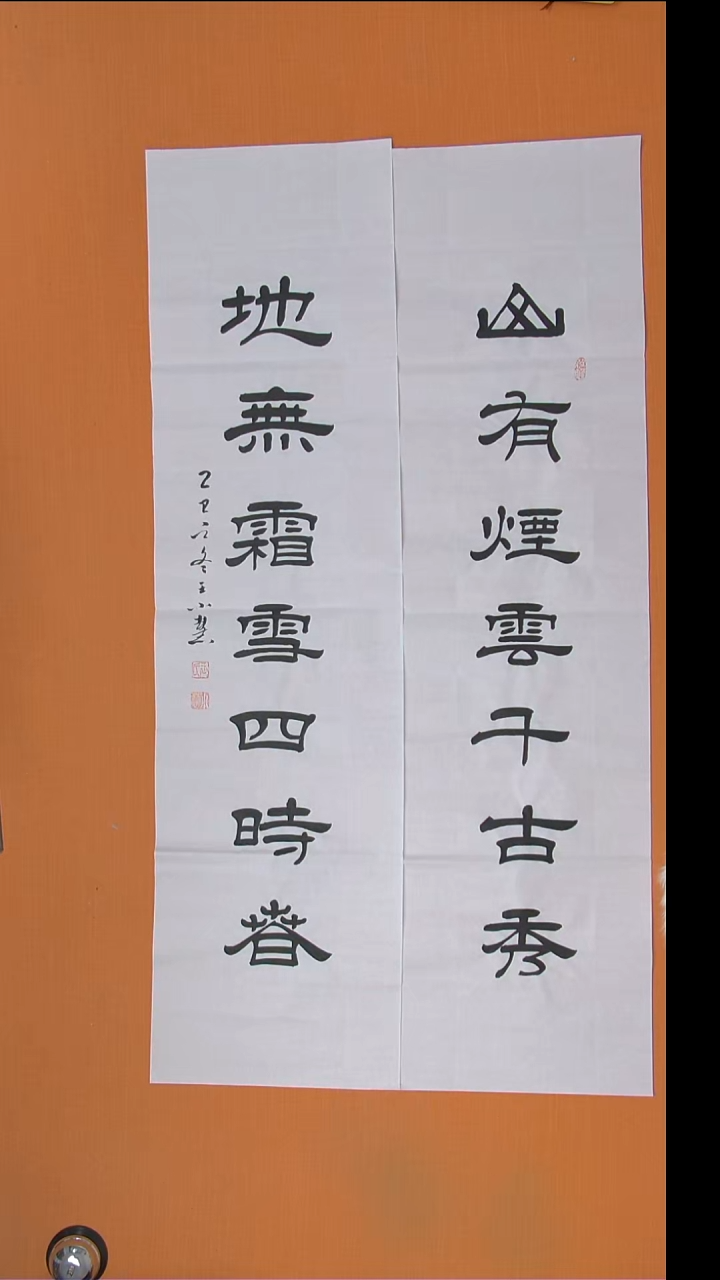 山有煙雲千古秀
地無霜雪四時春
乙巳立冬王小慧